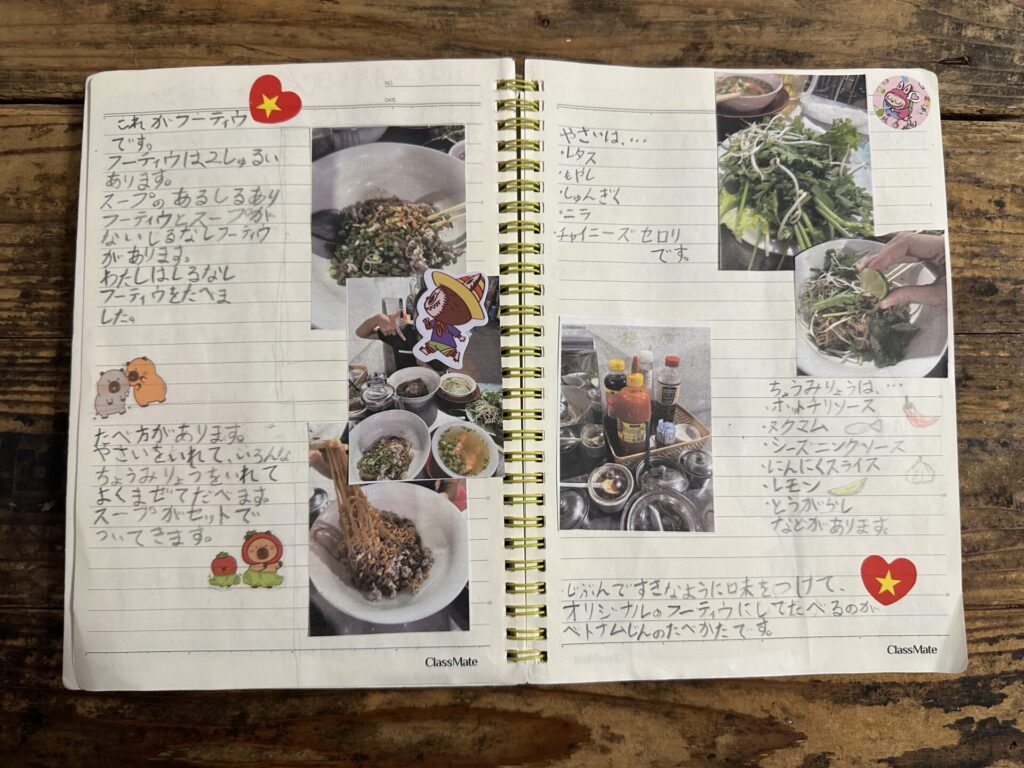 NO.
DATE
これがフーティウ
です。
フーティウは2しゅるい
あります。
スープのあるしるあり
フーティウとスープが
ないしるなしフーティウ
があります。
わたしはしるなし
フーティウをたべま
した。
たべ方があります。
やさいをいれて、いろんな
ちょうみりょうをいれて
よくまぜてたべます。
スープがセットで
ついてきます。
ClassMate
やさいは、…
・レタス
・もやし
・しゅんぎく
・ニラ
・チャイニーズセロリ
です。
ちょうみりょうは、…
・ホットチリソース
・ヌクマム
・シーズニングソース
・にんにくスライス
・レモン
・とうがらし
などがあります。
じぶんですきなように味をつけて、
オリジナルのフーティウにしてたべるのが
ベトナムじんのたべかたです。
ClassMate